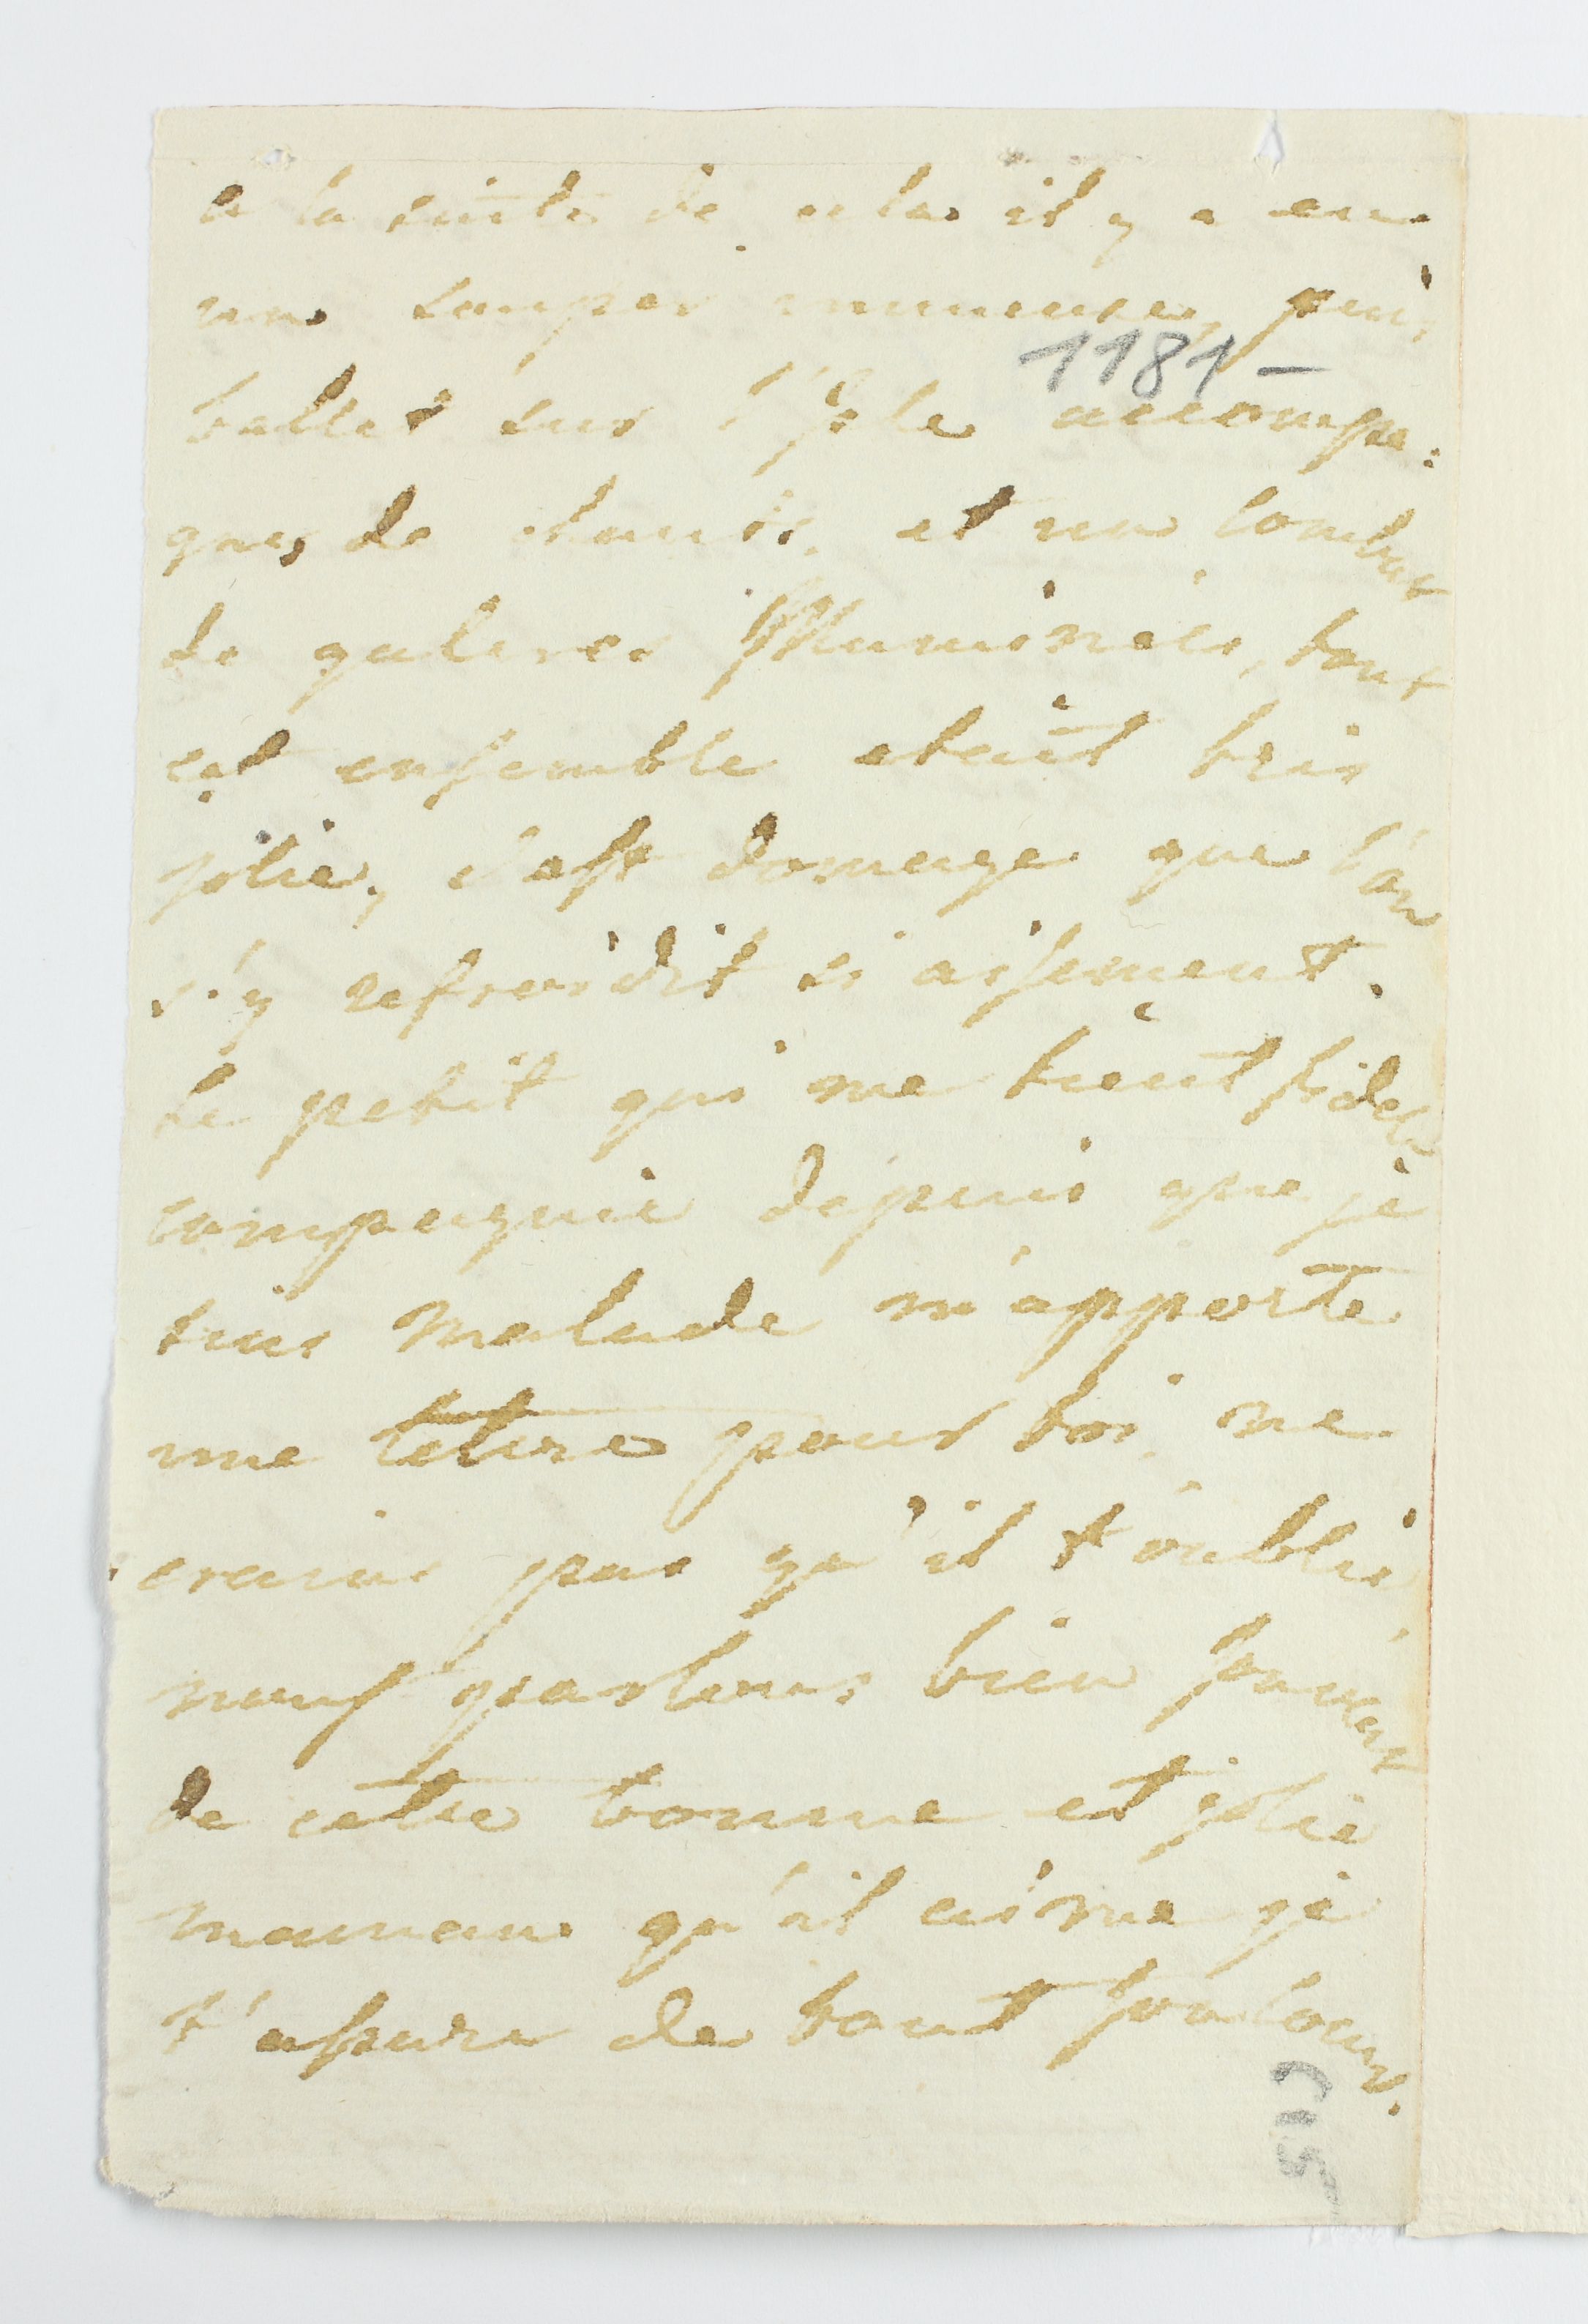 a la suite de cela il y a eu
un souper immense, puis,
ballet sur l'jsle accompa:
gnes de chants, et un combat
de galeres Illuminées, tout
cet ensemble etait tres
jolie, c'est domage que l'on
s'y refroidit si aisement.
Le petit qui me tient fidele
compagnie depuis que je
suis malade m'apporte
une lettre pour toi, ne
crains pas qu'il t'oublie,
nous parlons bien souvent
de cette bonne et jolie
maman qu'il aime je
t'assure de tout son coeur.
1181-
515